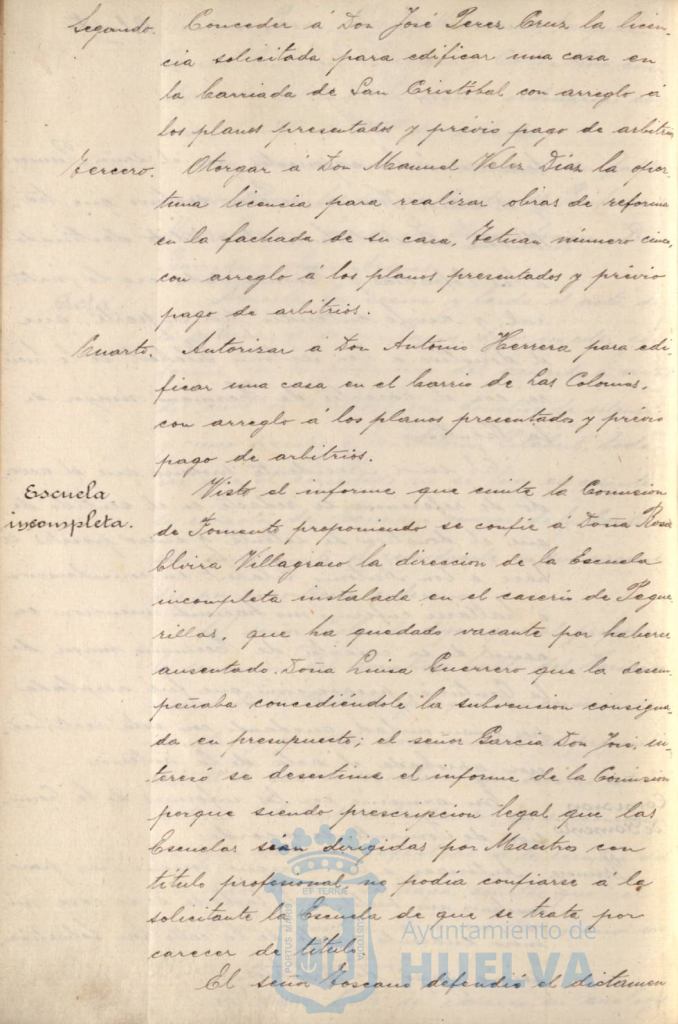 Segundo. Conceder á Don José Perez Cruz la licen-
cia solicitada para edificar una casa en
la barriada de San Cristóbal con arreglo á
los planos presentados y prévio pago de arbitrios
Tercero. Otorgar á Don Manuel Velez Diaz la opor-
tuna licencia para realizar obras de reforma
en la fachada de su casa, Tetuan número cinco,
con arreglo á los planos presentados y prévio
pago de arbitrios.
Cuarto. Autorizar á Don Antonio Herrera para edi-
ficar una casa en el barrio de Las Colonias,
con arreglo á los planos presentados y prévio
pago de arbitrios.
Escuela
incompleta.
Visto el informe que emite la Comision
de Fomento proponiendo se confie á Doña Rosa
Elvira Villagraso la direccion de la Escuela
incompleta instalada en el caserio de Pegue-
rillas, que ha quedado vacante por haberse
ausentado Doña Luisa Guerrero que la desem-
peñaba concediéndole la subvencion consigna-
da en presupuesto; el señor Garcia Don José, in-
teresó se desestime el informe de la Comision
porque siendo prescripcion legal que las
Escuelas sean dirigidas por Maestros con
título profesional no podia confiarse á la
solicitante la Escuela de que se trate por
carecer de título.
El señor Toscano defendió el dictamen
PORTUS MARIS ET TERRAE CUSTODIA
Ayuntamiento de
HUELVA